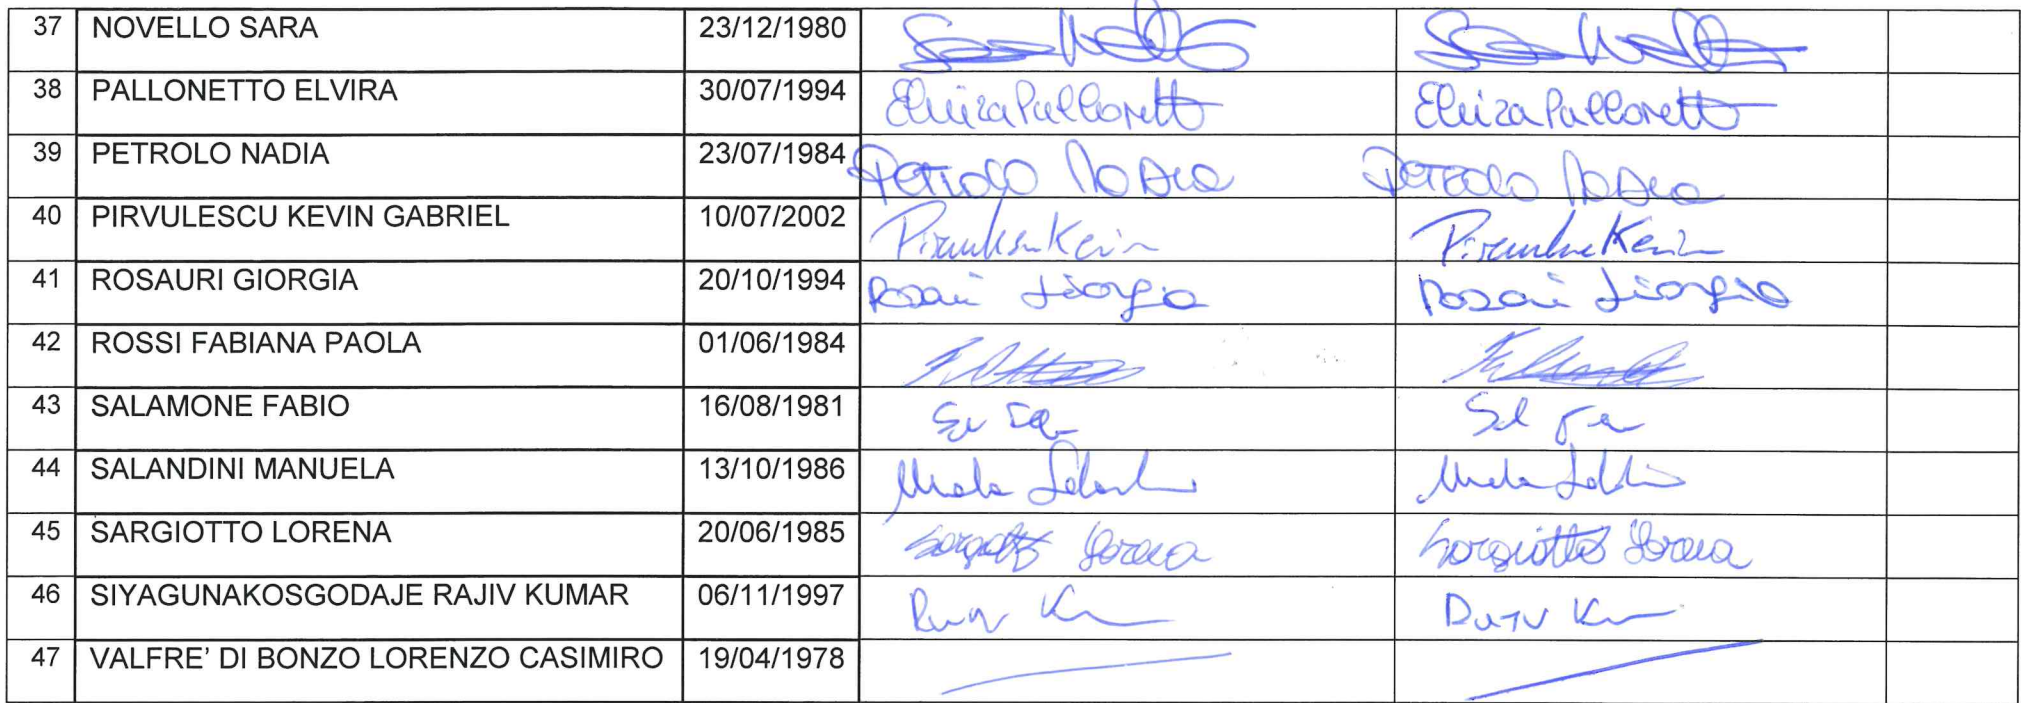 37 NOVELLO SARA 23/12/1980
38 PALLONETTO ELVIRA 30/07/1994 Elvira Pallonetto Elvira Pallonetto
39 PETROLO NADIA 23/07/1984 Petrolo Nadia Petrolo Nadia
40 PIRVULESCU KEVIN GABRIEL 10/07/2002 Kevin Kevin
41 ROSAURI GIORGIA 20/10/1994 Giorgia Giorgia
42 ROSSI FABIANA PAOLA 01/06/1984
43 SALAMONE FABIO 16/08/1981
44 SALANDINI MANUELA 13/10/1986
45 SARGIOTTO LORENA 20/06/1985 Lorena Sargiotto Lorena
46 SIYAGUNAKOSGODAJE RAJIV KUMAR 06/11/1997
47 VALFRE' DI BONZO LORENZO CASIMIRO 19/04/1978